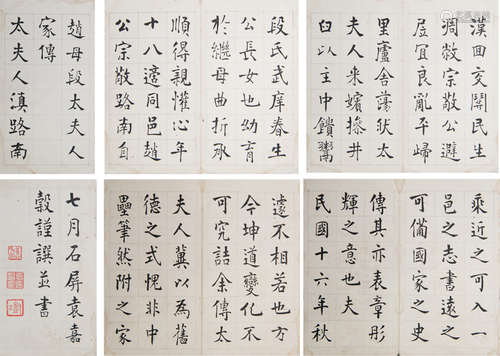 趙母段太夫人
家傳
太夫人滇路南
段氏武庠春生
公長女也幼育
於繼母曲折承
順得親懽心年
十八適同邑趙
公宗敬路南自
漢回互閧民生
凋敝宗敬公避
居宜良亂平歸
里廬舍蕩然太
夫人來嬪操井
臼以主中饋鬻
遽不相若也方
今坤道變化不
可究詰余傳太
夫人冀以為舊
德之式愧非中
壘筆然附之家
乘近之可入一
邑之志書遠之
可備國家之史
傳其亦表章彤
輝之意也夫
民國十六年秋
七月石屏袁嘉
穀謹譔並書